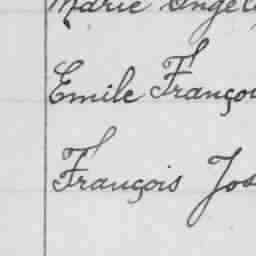 Marie Angel
Emile Françoi
François Jos